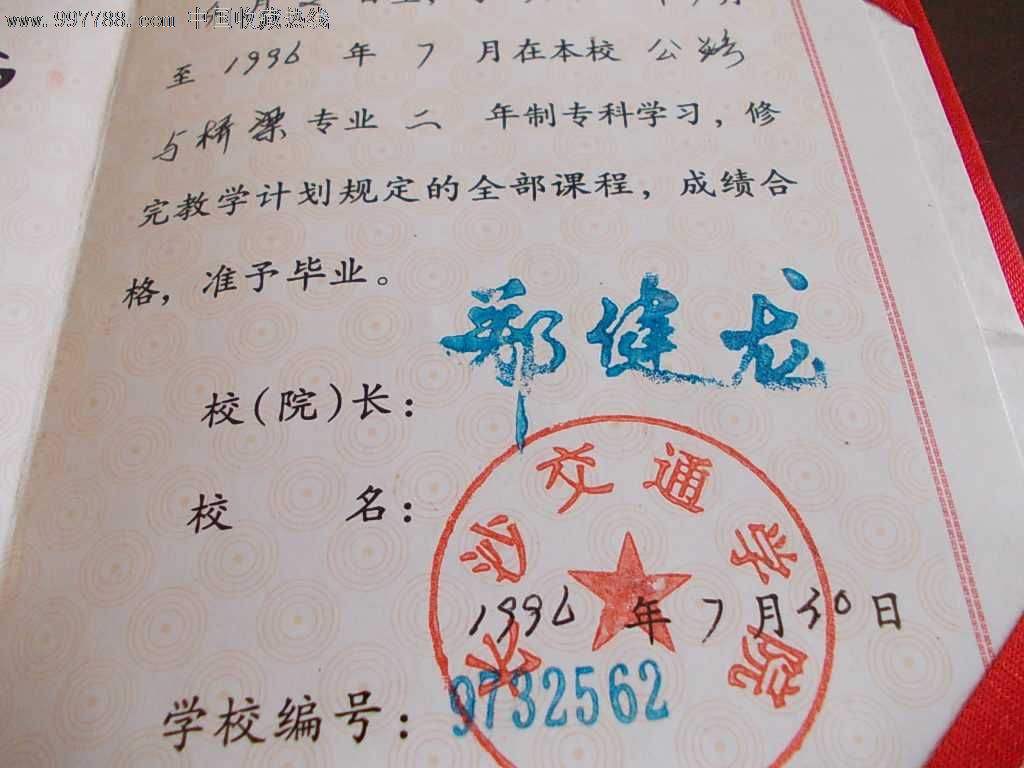 www.997788.com 中国收藏热线
至 1996 年 7 月在本校 公路
与桥梁 专业 二 年制专科学习，修
完教学计划规定的全部课程，成绩合
格，准予毕业。
郑健龙
校（院）长：
长沙交通学院
校 名：
1996 年 7 月 30 日
学校编号：9732562